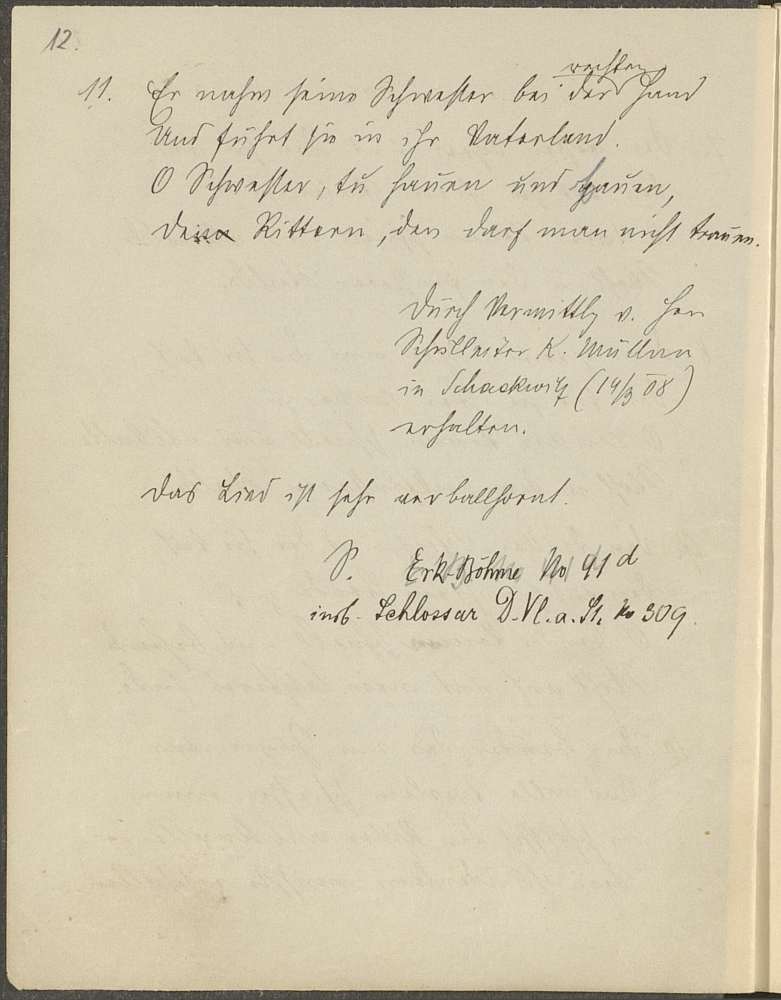 12.
rechten
11. Er nahm seine Schwester bei der Hand
Und führt sie in ihr Vaterland.
O Schwester, tu hauen und bauen,
Den Rittern, den darf man nicht trauen.
Durch Vermittlg v. Herrn
Schulleiter K. Müller
in Schackwitz (14/3 08)
erhalten.
Das Lied ist sehr verballhornt.
S. Erk-Böhme No 41 d
insb. Schlossar D. Vl. a. St. No 309.